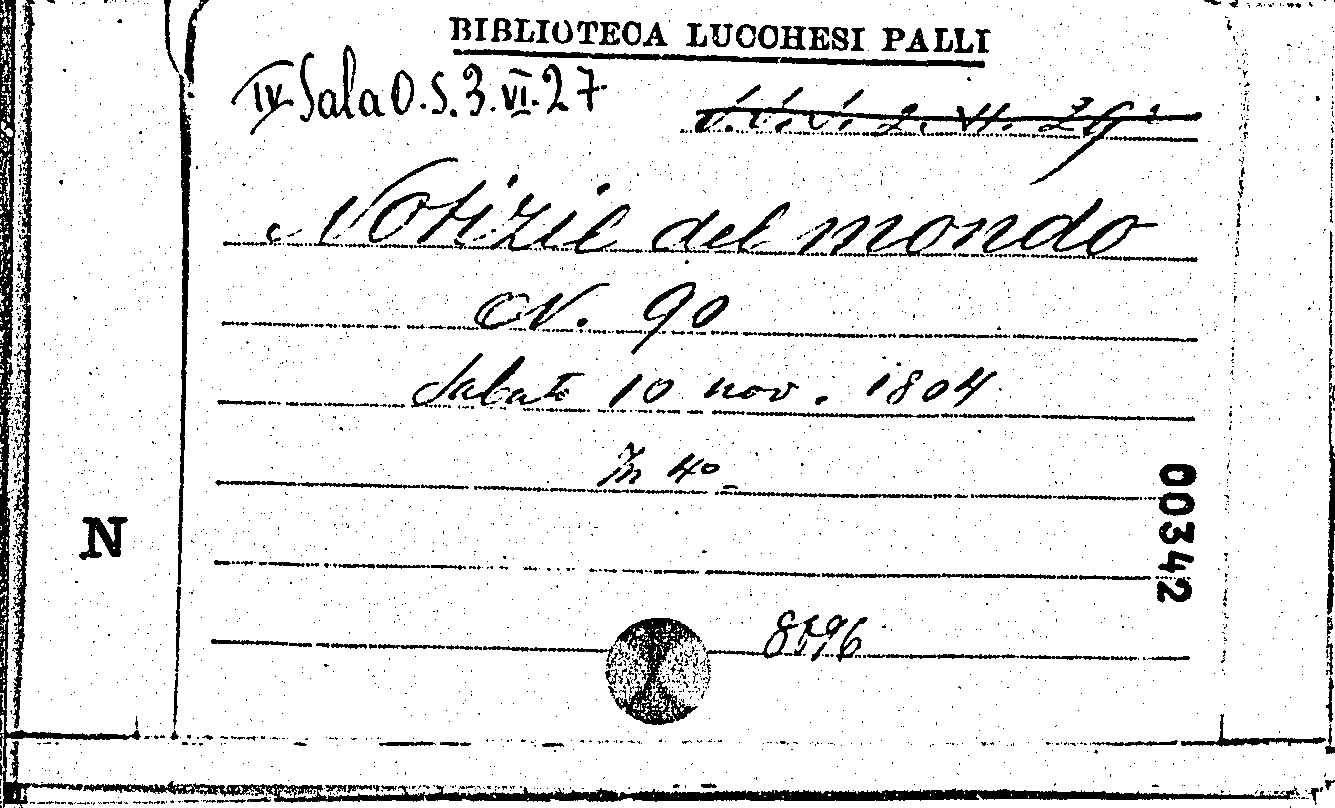 BIBLIOTECA LUCCHESI PALLI
IV Sala O.S.3.VI.27
Notizie del mondo
N. 90
Sabato 10 nov. 1804
In 4º
N
00342